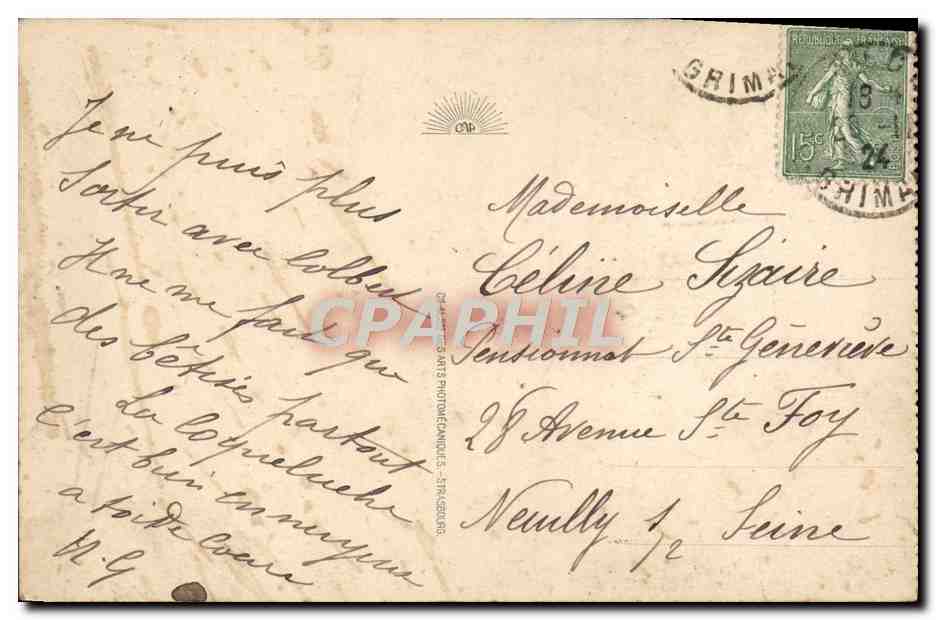 Je ne puis plus
Sortir avec Colbert
Il ne me fait que
des bêtises partout
La Coqueluche
C'est bien ennuyeux
a toi de Coeur
M. G
CAP
Mademoiselle
Céline Sizaire
Pensionnat Ste Geneviève
28 Avenue Ste Foy
Neuilly s/ Seine
DES ARTS PHOTOMÉCANIQUES. - STRASBOURG.
RÉPUBLIQUE FRANÇAISE
15c
GRIMA
18
24
GRIMA
CPAPHIL